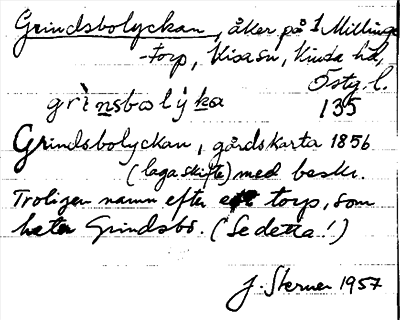 Grindsbolyckan, åker på 1 Millinge
-torp, Kisa sn, Kinda hd,
Östg. l.
grìnsbolỳka 135
Grindsbolyckan, gårdskarta 1856
(laga skifte) med beskr.
Troligen namn efter ett torp, som
heter Grindsbo. (Se detta!)
J. Sterner 1957